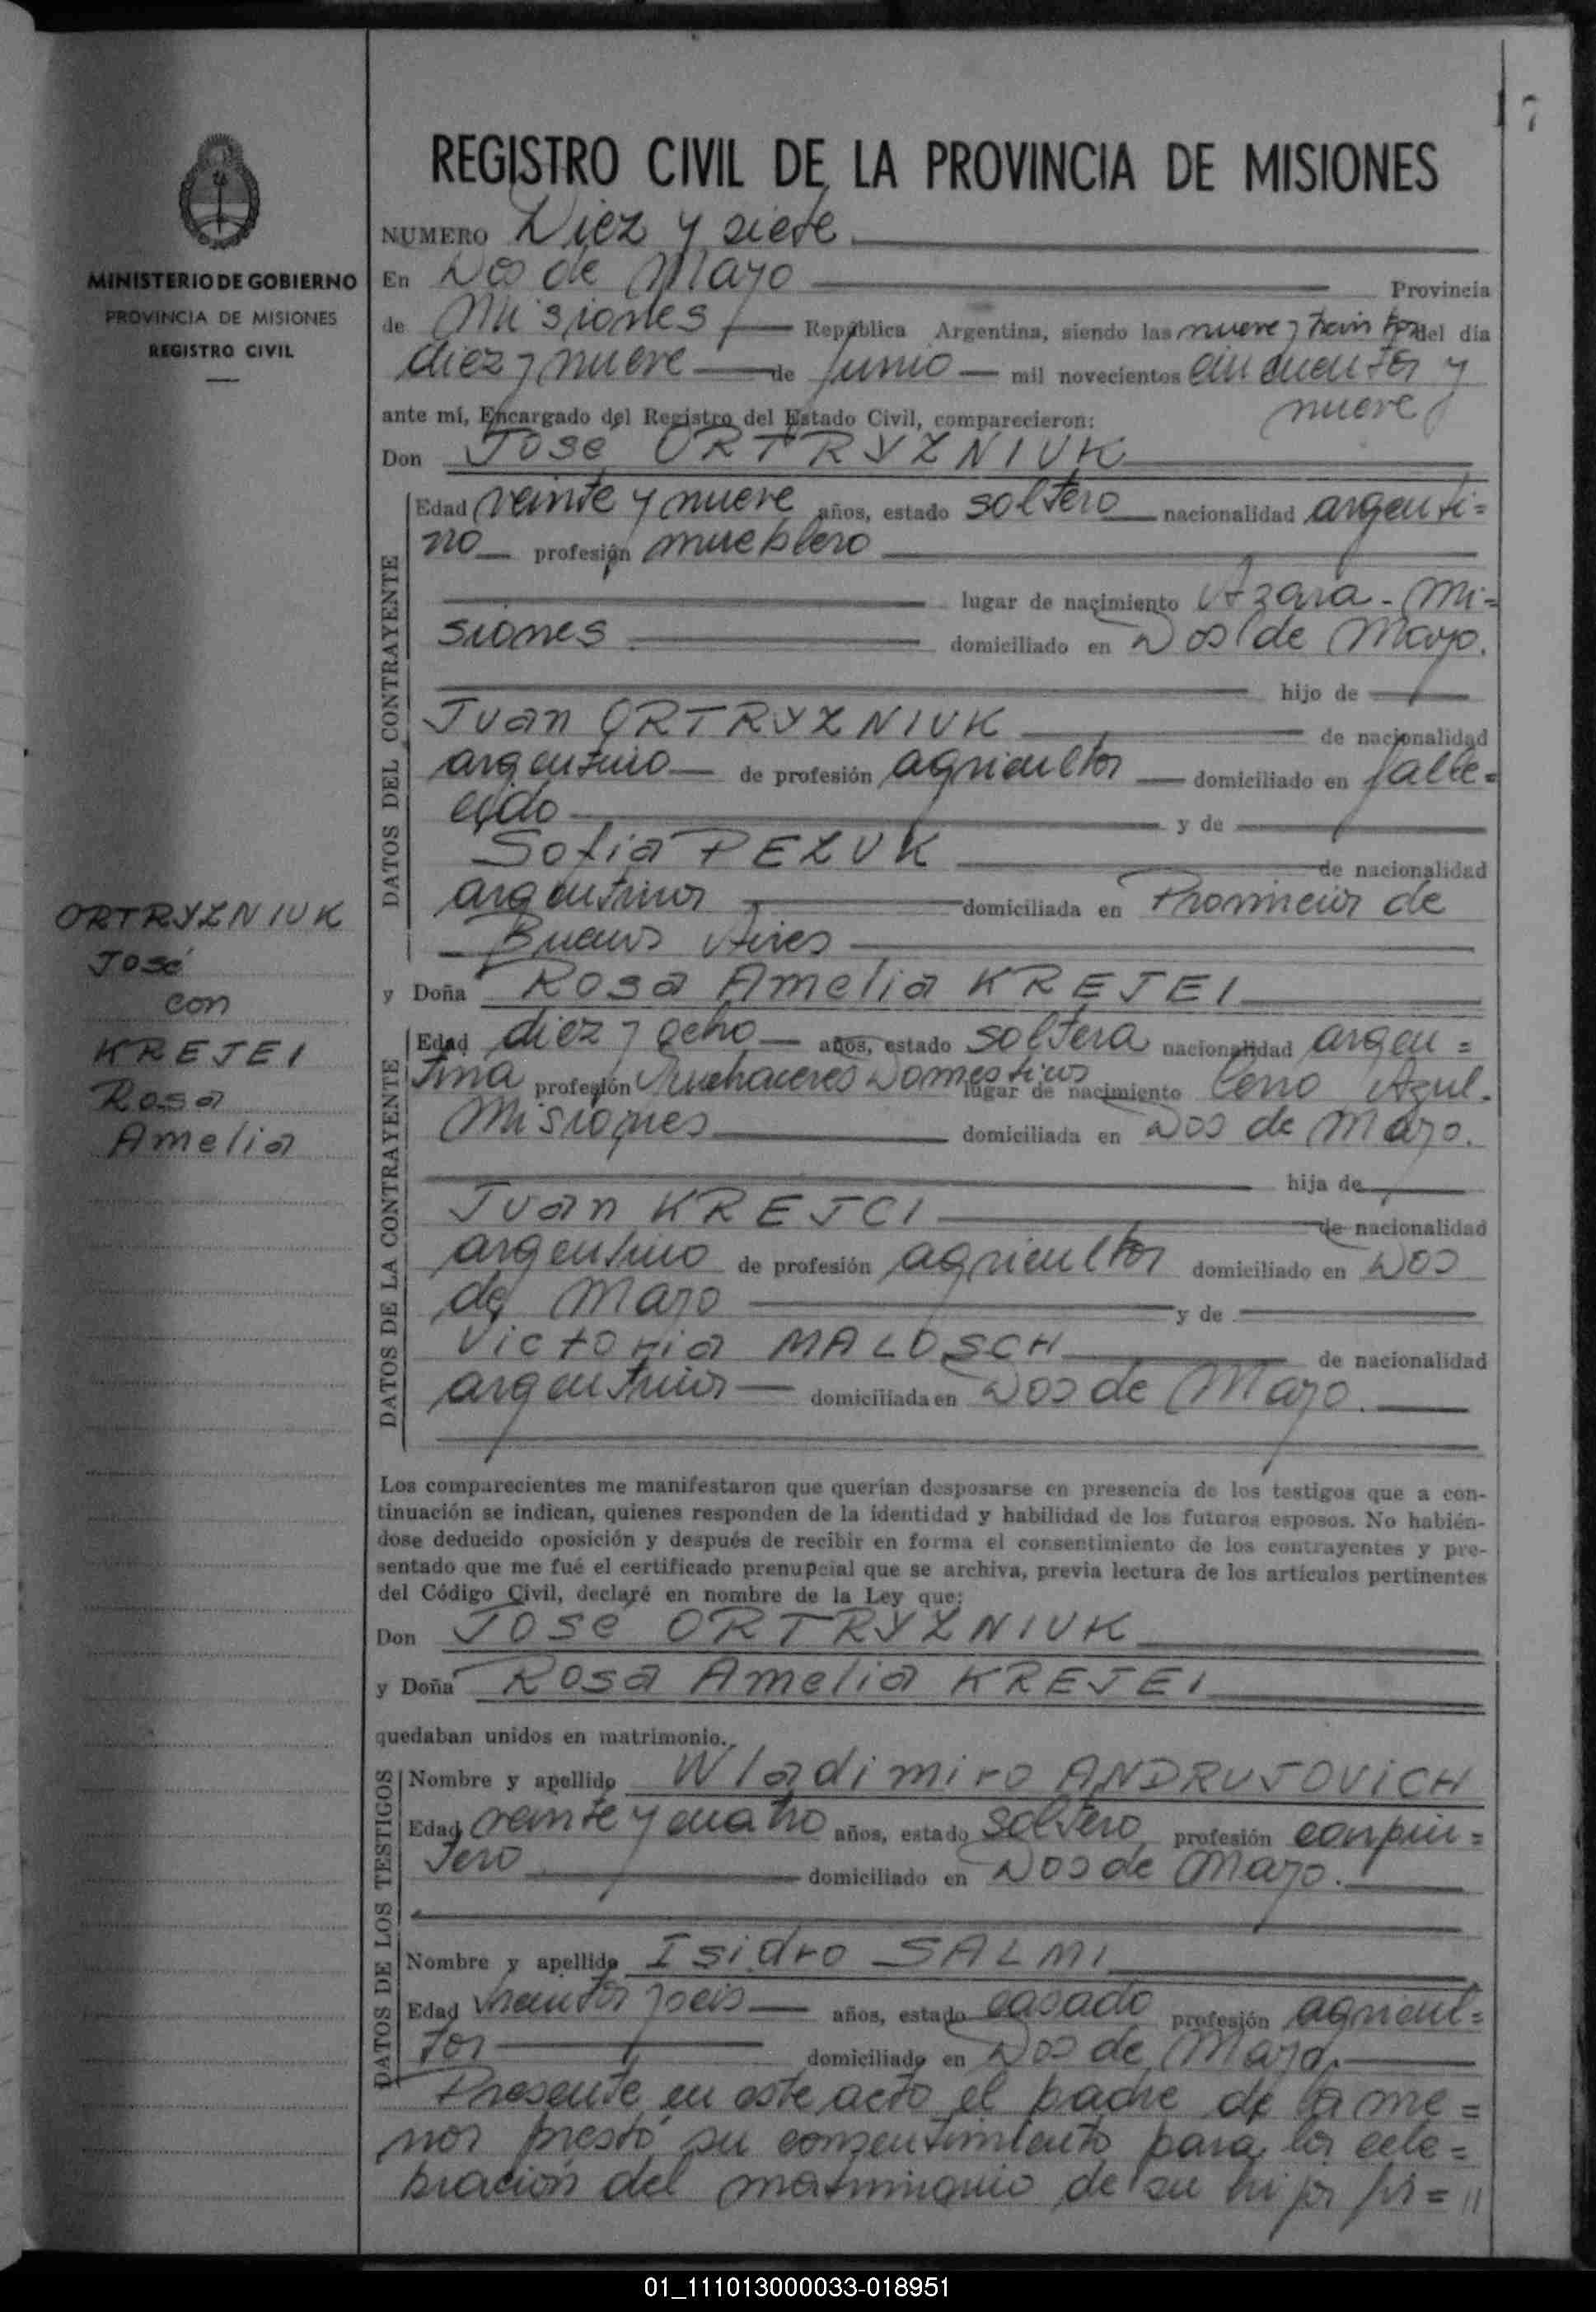 17
REGISTRO CIVIL DE LA PROVINCIA DE MISIONES
MINISTERIO DE GOBIERNO
PROVINCIA DE MISIONES
REGISTRO CIVIL
NUMERO Diez y siete
En Dos de Mayo Provincia
de Misiones República Argentina, siendo las nueve y treinta del día
diez y nueve de Junio mil novecientos cincuenta y
nueve
ante mí, Encargado del Registro del Estado Civil, comparecieron:
Don José ORTRYZNIUK
DATOS DEL CONTRAYENTE
Edad veinte y nueve años, estado soltero nacionalidad argenti=
no profesión mueblero
lugar de nacimiento Azara - Mi=
siones domiciliado en Dos de Mayo.
hijo de
Juan ORTRYZNIUK de nacionalidad
argentino de profesión agricultor domiciliado en falle=
cido y de
Sofia PEZUK de nacionalidad
argentina domiciliada en Provincia de
Buenos Aires
ORTRYZNIUK
José
con
KREJEI
Rosa
Amelia
y Doña Rosa Amelia KREJEI
DATOS DE LA CONTRAYENTE
Edad diez y ocho años, estado soltera nacionalidad argen=
tina profesión Quehaceres Domesticos lugar de nacimiento Cerro Azul.
Misiones domiciliada en Dos de Mayo.
hija de
Juan KREJCI de nacionalidad
argentino de profesión agricultor domiciliado en Dos
de Mayo y de
Victoria MALOSCH de nacionalidad
argentina domiciliada en Dos de Mayo.
Los comparecientes me manifestaron que querían desposarse en presencia de los testigos que a con-
tinuación se indican, quienes responden de la identidad y habilidad de los futuros esposos. No habién-
dose deducido oposición y después de recibir en forma el consentimiento de los contrayentes y pre-
sentado que me fué el certificado prenupcial que se archiva, previa lectura de los artículos pertinentes
del Código Civil, declaré en nombre de la Ley que:
Don José ORTRYZNIUK
y Doña Rosa Amelia KREJEI
quedaban unidos en matrimonio.
DATOS DE LOS TESTIGOS
Nombre y apellido Wladimiro ANDRUJOVICH
Edad veinte y cuatro años, estado soltero profesión carpin=
tero domiciliado en Dos de Mayo.
Nombre y apellido Isidro SALMI
Edad treinta y seis años, estado casado profesión agricul=
tor domiciliado en Dos de Mayo.
Presente en este acto el padre de la me=
nor prestó su consentimiento para la cele=
bración del matrimonio de su hija fir= //
01_111013000033-018951